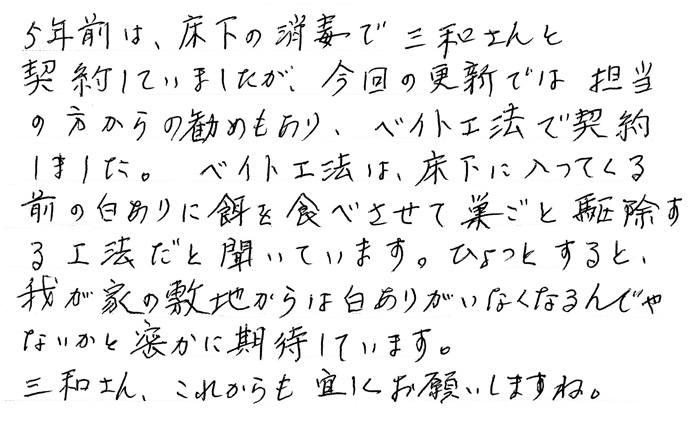 5年前は、床下の消毒で三和さんと
契約していましたが、今回の更新では担当
の方からの勧めもあり、ベイト工法で契約
しました。ベイト工法は、床下に入ってくる
前の白ありに餌を食べさせて巣ごと駆除す
る工法だと聞いています。ひょっとすると、
我が家の敷地からは白ありがいなくなるんじゃ
ないかと密かに期待しています。
三和さん、これからも宜しくお願いしますね。